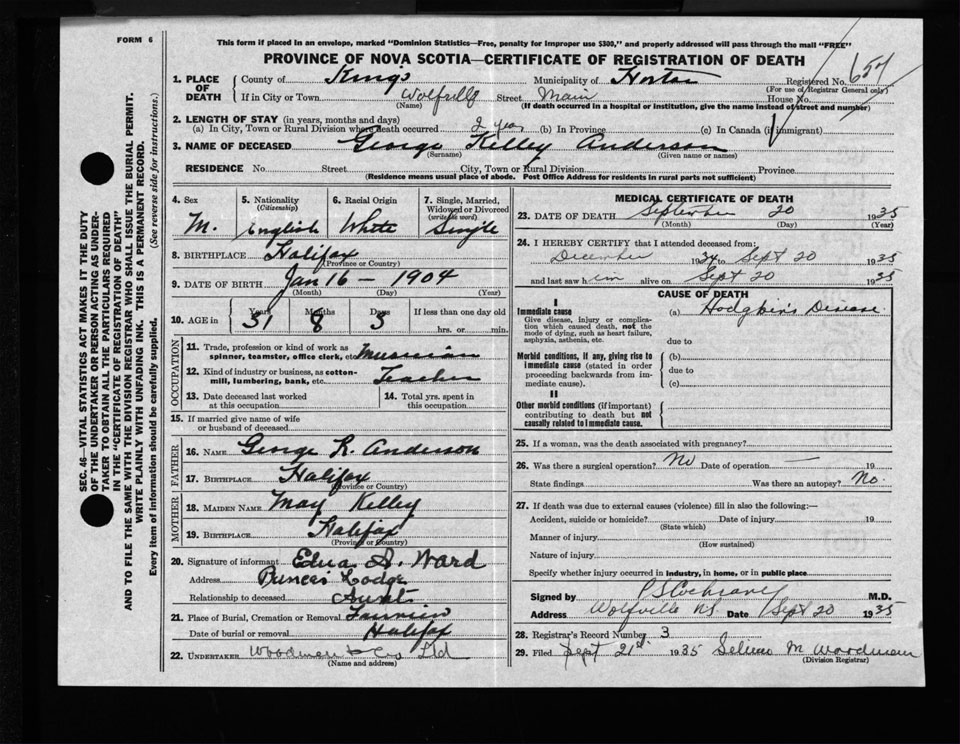 FORM 6
This form if placed in an envelope, marked "Dominion Statistics—Free, penalty for improper use $300," and properly addressed will pass through the mail "FREE"
PROVINCE OF NOVA SCOTIA—CERTIFICATE OF REGISTRATION OF DEATH
SEC. 46—VITAL STATISTICS ACT MAKES IT THE DUTY
OF THE UNDERTAKER OR PERSON ACTING AS UNDER-
TAKER TO OBTAIN ALL THE PARTICULARS REQUIRED
IN THE "CERTIFICATE OF REGISTRATION OF DEATH"
AND TO FILE THE SAME WITH THE DIVISION REGISTRAR WHO SHALL ISSUE THE BURIAL PERMIT.
WRITE PLAINLY WITH UNFADING INK. THIS IS A PERMANENT RECORD.
Every item of information should be carefully supplied. (See reverse side for instructions.)
1. PLACE OF DEATH
County of King's Municipality of Horton Registered No. 654
(For use of Registrar General only)
If in City or Town Wolfville Street Main House No.
(Name) (If death occurred in a hospital or institution, give the name instead of street and number)
2. LENGTH OF STAY (in years, months and days)
(a) In City, Town or Rural Division where death occurred 2 yrs (b) In Province (c) In Canada (if immigrant)
3. NAME OF DECEASED George Kelley Anderson
(Surname) (Given name or names)
RESIDENCE No. Street City, Town or Rural Division Province
(Residence means usual place of abode. Post Office Address for residents in rural parts not sufficient)
4. Sex M.
5. Nationality (Citizenship) English
6. Racial Origin White
7. Single, Married, Widowed or Divorced (write the word) Single
8. BIRTHPLACE Halifax
(Province or Country)
9. DATE OF BIRTH Jan 16 — 1904
(Month) (Day) (Year)
10. AGE in Years 31 Months 8 Days 3 If less than one day old
hrs. or min.
OCCUPATION
11. Trade, profession or kind of work as spinner, teamster, office clerk, etc. Musician
12. Kind of industry or business, as cotton-mill, lumbering, bank, etc. Teacher
13. Date deceased last worked at this occupation
14. Total yrs. spent in this occupation
15. If married give name of wife or husband of deceased
FATHER
16. NAME George R. Anderson
17. BIRTHPLACE Halifax
(Province or Country)
MOTHER
18. MAIDEN NAME May Kelley
19. BIRTHPLACE Halifax
(Province or Country)
20. Signature of informant Edna A. Ward
Address Lodge
Relationship to deceased Aunt
21. Place of Burial, Cremation or Removal
Date of burial or removal Halifax
22. UNDERTAKER Woodman & Co Ltd
(Name and address)
MEDICAL CERTIFICATE OF DEATH
23. DATE OF DEATH September 20 1935
(Month) (Day) (Year)
24. I HEREBY CERTIFY that I attended deceased from:
December 1934 to Sept 20 1935
and last saw him alive on Sept 20 1935
CAUSE OF DEATH
I
Immediate cause
Give disease, injury or complication which caused death, not the mode of dying, such as heart failure, asphyxia, asthenia, etc.
(a) Hodgkin's Disease
due to
Morbid conditions, if any, giving rise to immediate cause (stated in order proceeding backwards from immediate cause).
(b)
due to
(c)
II
Other morbid conditions (if important) contributing to death but not causally related to immediate cause.
25. If a woman, was the death associated with pregnancy?
26. Was there a surgical operation? No Date of operation — 19
State findings Was there an autopsy? No.
27. If death was due to external causes (violence) fill in also the following:—
Accident, suicide or homicide? Date of injury 19
(State which)
Manner of injury
(How sustained)
Nature of injury
Specify whether injury occurred in industry, in home, or in public place
Signed by P S Cochrane M.D.
Address Wolfville N.S. Date Sept 20 1935
28. Registrar's Record Number 3
29. Filed Sept 21st 1935 M Woodman
(Division Registrar)